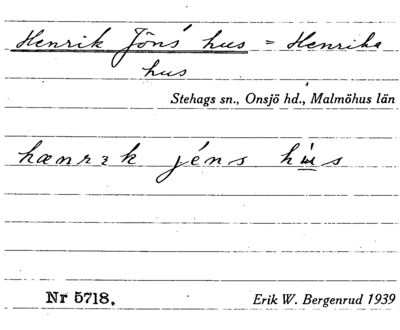 Henrik Jöns' hus = Henriks
hus
Stehags sn., Onsjö hd., Malmöhus län
hænrɪk jéns hús
Nr 5718. Erik W. Bergenrud 1939